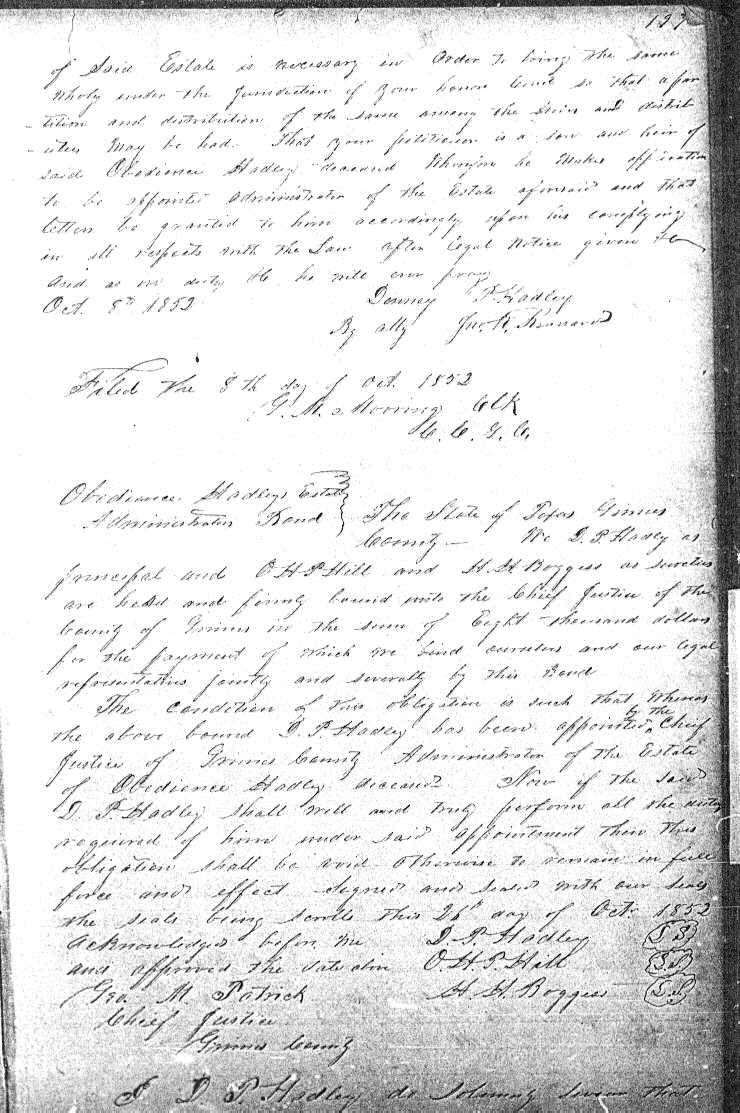 of Said Estate is necessary in order to bring the same
wholy under the Jurisdiction of your honor Court so that a par
tition and distribution of the same among the Heirs and distrib
utees may be had. That your petitioner is a son and heir of
said Obedience Hadley deceased Wherefore he makes application
to be appointed Administrator of the Estate aforesaid and that
letters be granted to him accordingly upon his complying
in all respects with the Law after legal Notice given &c
And as in duty &c he will ever pray
Oct. 8th 1852
Denney P. Hadley
By atty Jno. R. Kennard
Filed the 8th day of Oct. 1852
G. M. Mooring Clk
C. C. G. C.
Obediance Hadley's Estate
Administrators Bond } The State of Texas Grimes
County — We D. P. Hadley as
principal and O. H. P. Hill and H. H. Boggess as sureties
are held and firmly bound unto the Chief Justice of the
County of Grimes in the sum of Eight thousand dollars
for the payment of which we bind ourselves and our legal
representatives jointly and severally by this Bond
The condition of this obligation is such that whereas
the above bound D. P. Hadley has been appointed by the Chief
Justice of Grimes County Administrator of the Estate
of Obedience Hadley deceased. Now if the said
D. P. Hadley shall well and truly perform all the duties
required of him under said appointment then this
obligation shall be void otherwise to remain in full
force and effect Signed and sealed with our seals
the seals being scrolls this 26th day of Oct. 1852
Acknowledged before me D. P. Hadley
and approved the date above O. H. P. Hill
Geo. M. Patrick H. H. Boggess
Chief Justice
Grimes County
I D. P. Hadley do Solemnly swear that